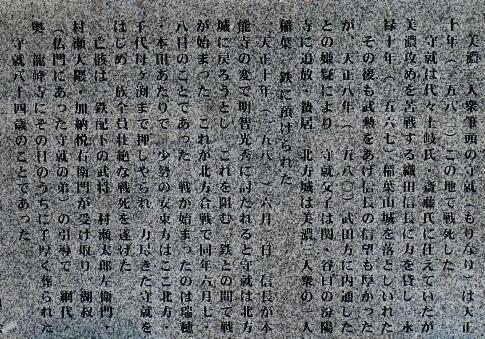 美濃三人衆筆頭の守就（もりなり）は天正
十年（一五八二）この地で戦死した
守就は代々土岐氏・斎藤氏に仕えていたが
美濃攻めを苦戦する織田信長に力を貸し 永
禄十年（一五六七）稲葉山城を落としいれた
その後も武勲をあげ信長の信望も厚かった
が、天正八年（一五八〇）武田方に内通した
との嫌疑により 守就父子は関 谷口の汾陽
寺に追放・蟄居 北方城は美濃三人衆の一人
稲葉一鉄に預けられた
天正十年（一五八二）六月二日 信長が本
能寺の変で明智光秀に討たれると守就は北方
城に戻ろうとし これを阻む一鉄との間で戦
が始まった これが北方合戦で同年六月七・
八日のことであった 戦が始まったのは瑞穂
・本田あたりで 少勢の安東方はここ北方・
千代母ヶ渕まで押しやられ 力尽きた守就を
はじめ一族全員壮絶な戦死を遂げた
亡骸は一鉄配下の武将 村瀬太郎左衛門・
村瀬大隈・加納悦右衛門が受け取り 湖叔
（仏門にあった守就の弟）の引導で 網代・
奥 龍峰寺にその日のうちに手厚く葬られた
守就八十四歳のことであった